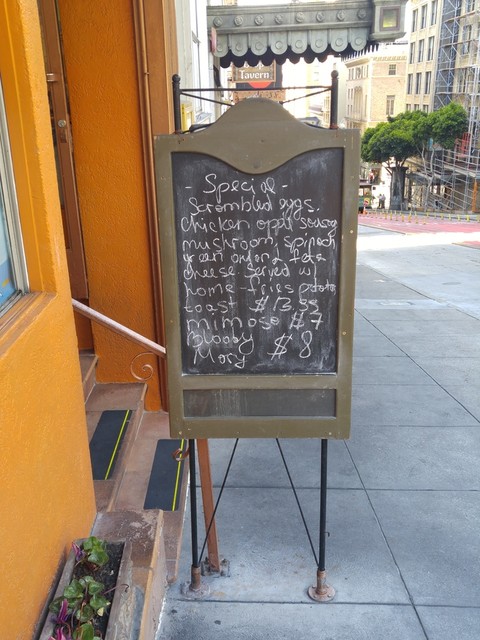 Tavern
- Special -
Scrombled eggs.
Chicken appl sausag
mushroom, spinach
green onion & feta
cheese served w/
home-fries potato
toast $13.95
mimosa $7
Bloody
Mary $8